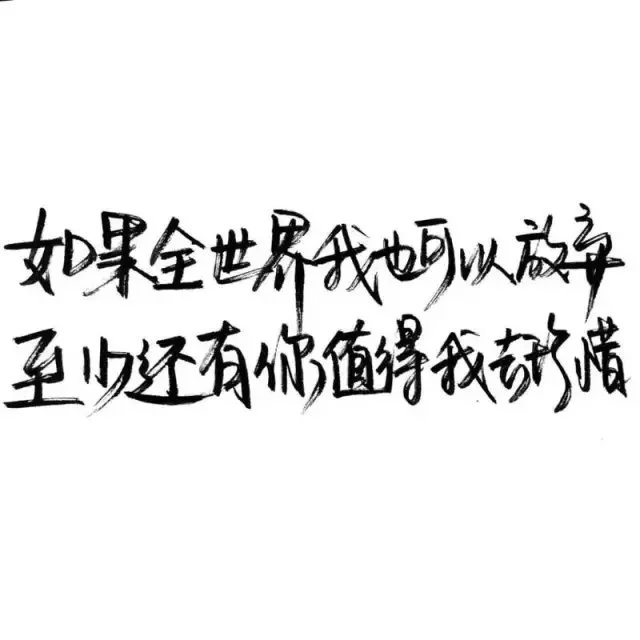 如果全世界我也可以放弃
至少还有你值得我去珍惜